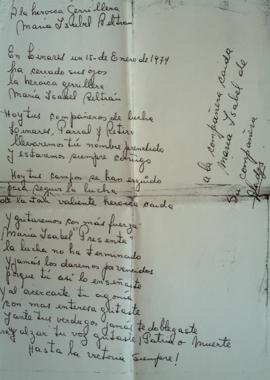 A la heroica Gerrillera
María Isabel Beltrán
En Linares un 15 de Enero de 1974
ha cerrado sus ojos
la heroica gerrillera
María Isabel Beltrán
Hoy tus compañeros de lucha
Linares, Parral y Retiro
llevaremos tú nombre prendido
y estaremos siempre contigo
Hoy tus campos se han
para seguir la lucha
de la tan valiente heroica caida
y gritaremos con más fuerza
María Isabel "Presente"
la lucha no ha terminado
y jamás los daremos por vencidos
porque tú así lo enseñaste
y al acercarte tu agonía
con mas entereza gritaste
y ante tus verdugos jamás te doblegaste
y alzar tu voz Patria o Muerte
Hasta la victoria siempre!
a la compañera caida
María Isabel de
Su compañera